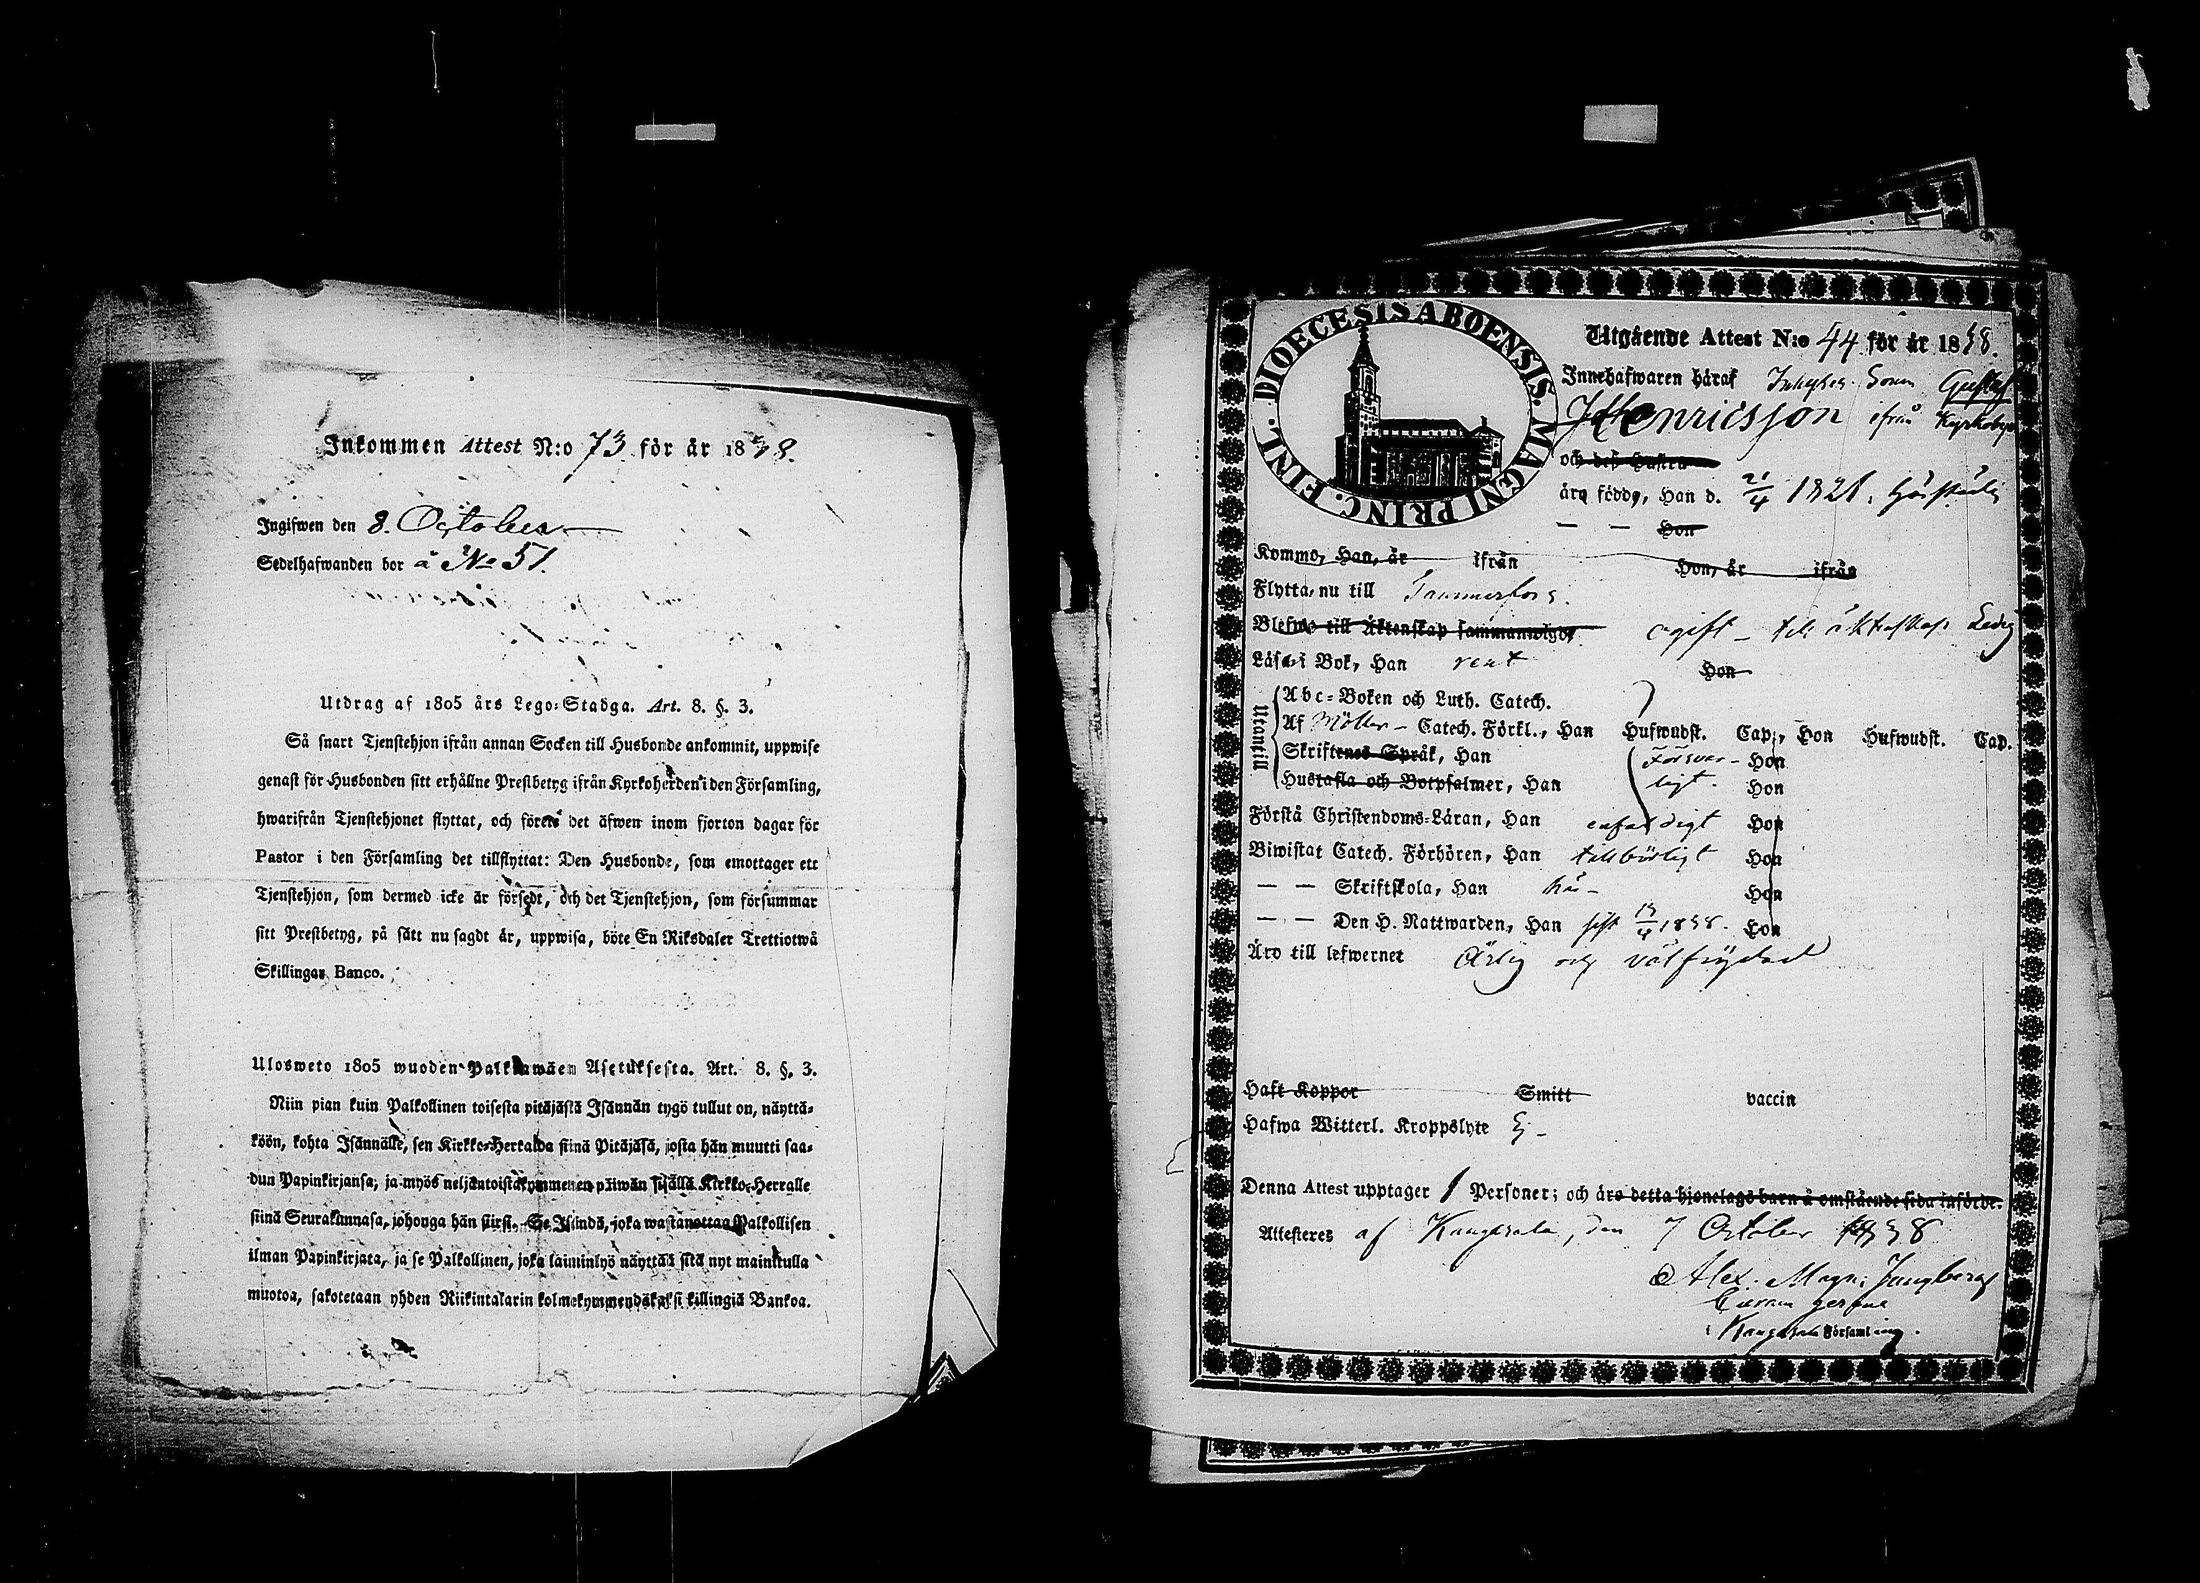 Inkommen Attest N:o 73 för år 1838.
Ingifwen den 8. October
Sedelhafwanden bor å No 51.
Utdrag af 1805 års Lego-Stadga. Art. 8. §. 3.
Så snart Tjenstehjon ifrån annan Socken till Husbonde ankommit, uppwise
genast för Husbonden sitt erhållne Prestbetyg ifrån Kyrkoherden i den Församling,
hwarifrån Tjenstehjonet flyttat, och förete det äfwen inom fjorton dagar för
Pastor i den Församling det tillflyttat: Den Husbonde, som emottager ett
Tjenstehjon, som dermed icke är försedt, och det Tjenstehjon, som försummar
sitt Prestbetyg, på sätt nu sagdt är, uppwisa, böte En Riksdaler Trettiotwå
Skillingar Banco.
Ulosweto 1805 wuoden Palkkawäen Asetuksesta. Art. 8. §. 3.
Niin pian kuin Palkollinen toisesta pitäjästä Isännän tygö tullut on, näyttä-
köön, kohta Isännälle, sen Kirkko-Herralda siinä Pitäjäsä, josta hän muutti saa-
dun Papinkirjansa, ja myös neljäntoistakymmenen päiwän sisällä Kirkko-Herralle
siinä Seurakunnasa, johonga hän siirsi. Se Isändä, joka wastanottaa Palkollisen
ilman Papinkirjata, ja se Palkollinen, joka laiminlyö näyttää sitä nyt mainitulla
muotoa, sakotetaan yhden Riikintalarin kolmekymmendäkaksi killingiä Bankoa.
DIOECESIS ABOENSIS. MAGNI PRINC. FINL.
Utgående Attest N:o 44 för år 1838.
Innehafwaren häraf Inhyses Sonen Gustaf
Henricsson ifrån Kyrkoby
och deß hustru
äro födde, Han d. 21/4 1821.
— — Hon
Kommo, Han, år ifrån Hon, år ifrån
Flytta, nu till Tammerfors.
Blefwo till Äktenskap sammanwigde ogift - till äktenskap Ledig
Läsa i Bok, Han rent Hon
Utantill
Abc-Boken och Luth. Catech.
Af Möllers Catech. Förkl., Han Hufwudst. Cap., Hon Hufwudst. Cap.
Skriftenes Språk, Han Försvar- Hon
Hustafla och Botpsalmer, Han ligt. Hon
Förstå Christendoms-Läran, Han enfaldigt Hon
Biwistat Catech. Förhören, Han tillbörligt Hon
— — Skriftskola, Han Hon
— — Den H. Nattwarden, Han sist 15/4 1838. Hon
Äro till lefwernet Ärlig och välfrejdad
Haft Koppor Smitt vaccin
Hafwa Witterl. Kroppslyte Ej
Denna Attest upptager 1 Personer; och äro detta hjonelags barn å omstående sida införde.
Attesteres af Kangasala, den 7 October 1838
Alex. Magn. Ljungberg
i Kangasala Församling.